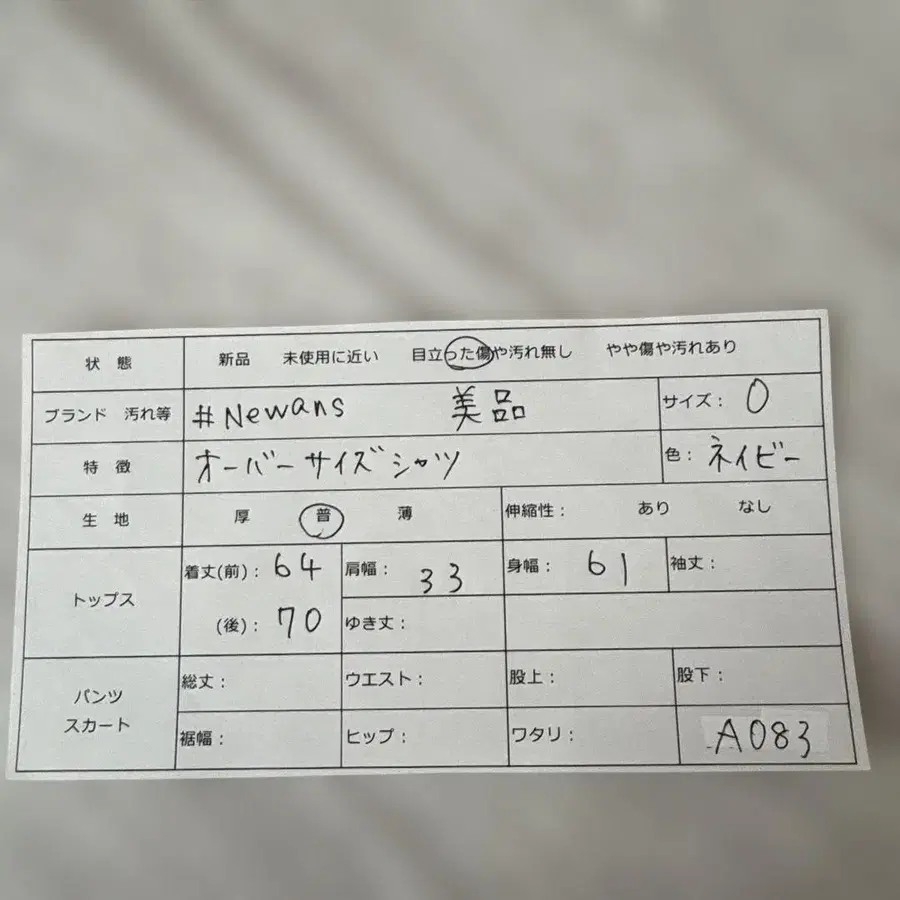 状 態 新品 未使用に近い 目立った傷や汚れ無し やや傷や汚れあり
ブランド 汚れ等 #Newans 美品 サイズ： 0
特 徴 オーバーサイズシャツ 色： ネイビー
生 地 厚 普 薄 伸縮性： あり なし
トップス 着丈(前)： 64 肩幅： 33 身幅： 61 袖丈：
(後)： 70 ゆき丈：
パンツ スカート 総丈： ウエスト： 股上： 股下：
裾幅： ヒップ： ワタリ： A083